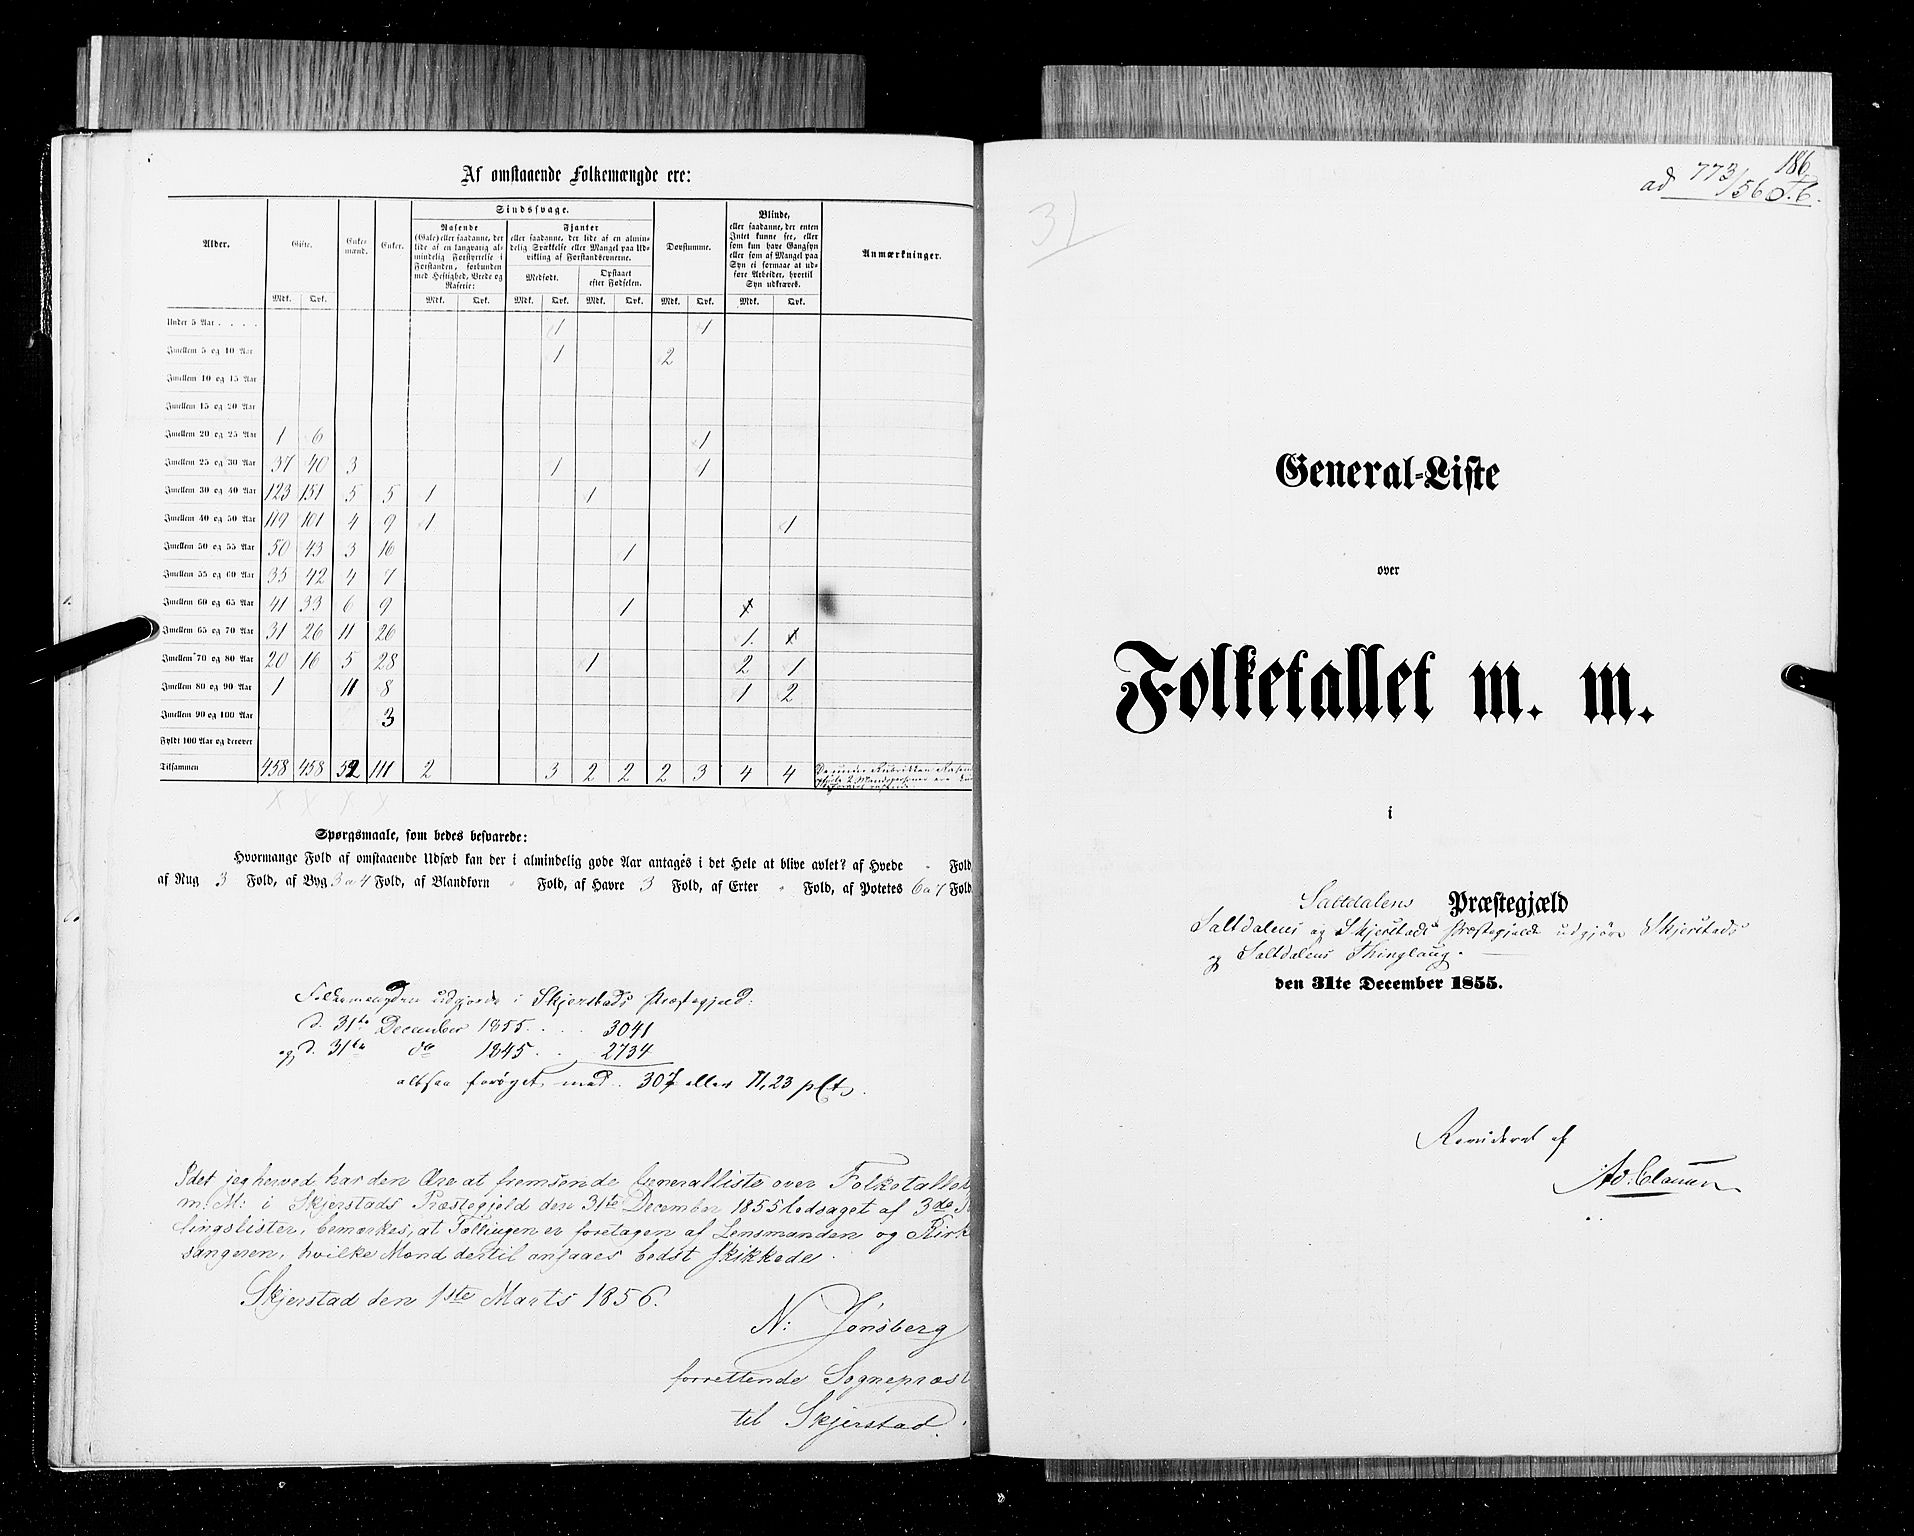 Af omstaaende Folkemængde ere:
Alder. Gifte. Enkemænd. Enker. Sindssvage. Døvstumme. Blinde, Anmærkninger.
Rasende (Gale) eller saadanne, der lide af en langvarig almindelig Forstyrrelse i Forstanden, forbunden med Heftighed, Vrede og Raseri:
Fjanter eller saadanne, der lide af en almindelig Svækkelse eller Mangel paa Udvikling af Forstandsevnerne.
Medfødt. Opstaaet efter Fødselen.
eller saadanne, der enten Intet kunne see, eller som kun have Gangsyn eller som af Mangel paa Syn ei formaae at udføre Arbeider, hvortil Syn udkræves.
Mdk. Qvk. Mdk. Qvk. Mdk. Qvk. Mdk. Qvk. Mdk. Qvk. Mdk. Qvk.
Under 5 Aar . . . . 1 1
Imellem 5 og 10 Aar 1 2
Imellem 10 og 15 Aar
Imellem 15 og 20 Aar
Imellem 20 og 25 Aar 1 6 1
Imellem 25 og 30 Aar 37 40 3 1 1
Imellem 30 og 40 Aar 123 151 5 5 1 1
Imellem 40 og 50 Aar 119 101 4 9 1 1
Imellem 50 og 55 Aar 50 43 3 16 1
Imellem 55 og 60 Aar 35 42 4 7
Imellem 60 og 65 Aar 41 33 6 9 1
Imellem 65 og 70 Aar 31 26 11 26 1
Imellem 70 og 80 Aar 20 16 5 28 1 2 1
Imellem 80 og 90 Aar 1 11 8 1 2
Imellem 90 og 100 Aar 3
Fyldt 100 Aar og derover
Tilsammen 458 458 52 111 2 3 2 2 2 3 4 4
Spørgsmaale, som bedes besvarede:
Hvormange Fold af omstaaende Udsæd kan der i almindelig gode Aar antages i det Hele at blive avlet? af Hvede " Fold
af Rug 3 Fold, af Byg 3 a 4 Fold, af Blandkorn " Fold, af Havre 3 Fold, af Erter " Fold, af Potetes 6 a 7 Fold
Folkemængden udgjorde i Skjerstads Præstegjeld:
d. 31te December 1855 . . . 3041
og d. 31te do 1845 . . 2734
altsaa forøget med 307 eller 11,23 pCt.
Idet jeg herved har den Ære at fremsende Generalliste over Folketallet
m: M: i Skjerstads Præstegjeld den 31te December 1855 ledsaget af 3de
lingslister, bemærkes, at Tællingen er foretagen af Lensmanden og Kirke
sangeren, hvilke Mænd dertil ansaaes bedst skikkede.
Skjerstad den 1ste Marts 1856.
N: Jonsberg
forrettende Sognepræst
til Skjerstad.
31
186
ad 773/56
General-Liste
over
Folketallet m. m.
i
Saltdalens Præstegjæld
Saltdalens og Skjerstads Præstegjelde udgjøre Skjerstads
og Saltdalens Thinglaug.
den 31te December 1855.
Revideret af
Ad: Clausen